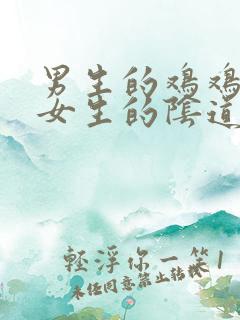 男生的鸡鸡
女生的陰道
輕浮你一笑1
未经同意禁止转载